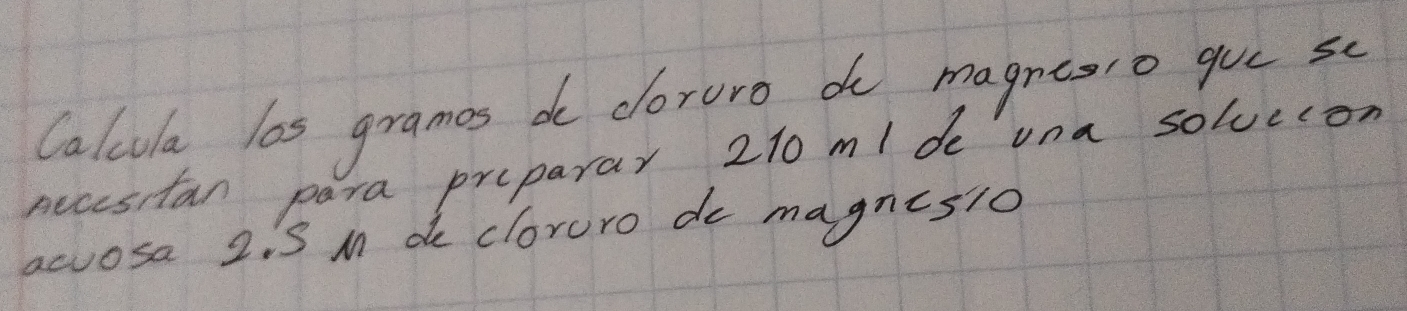 Calcula los gramos de cloruro de magnesio que se
necesitan para preparar 210 ml de una solucion
acuosa 2.5 M de cloruro de magnesio